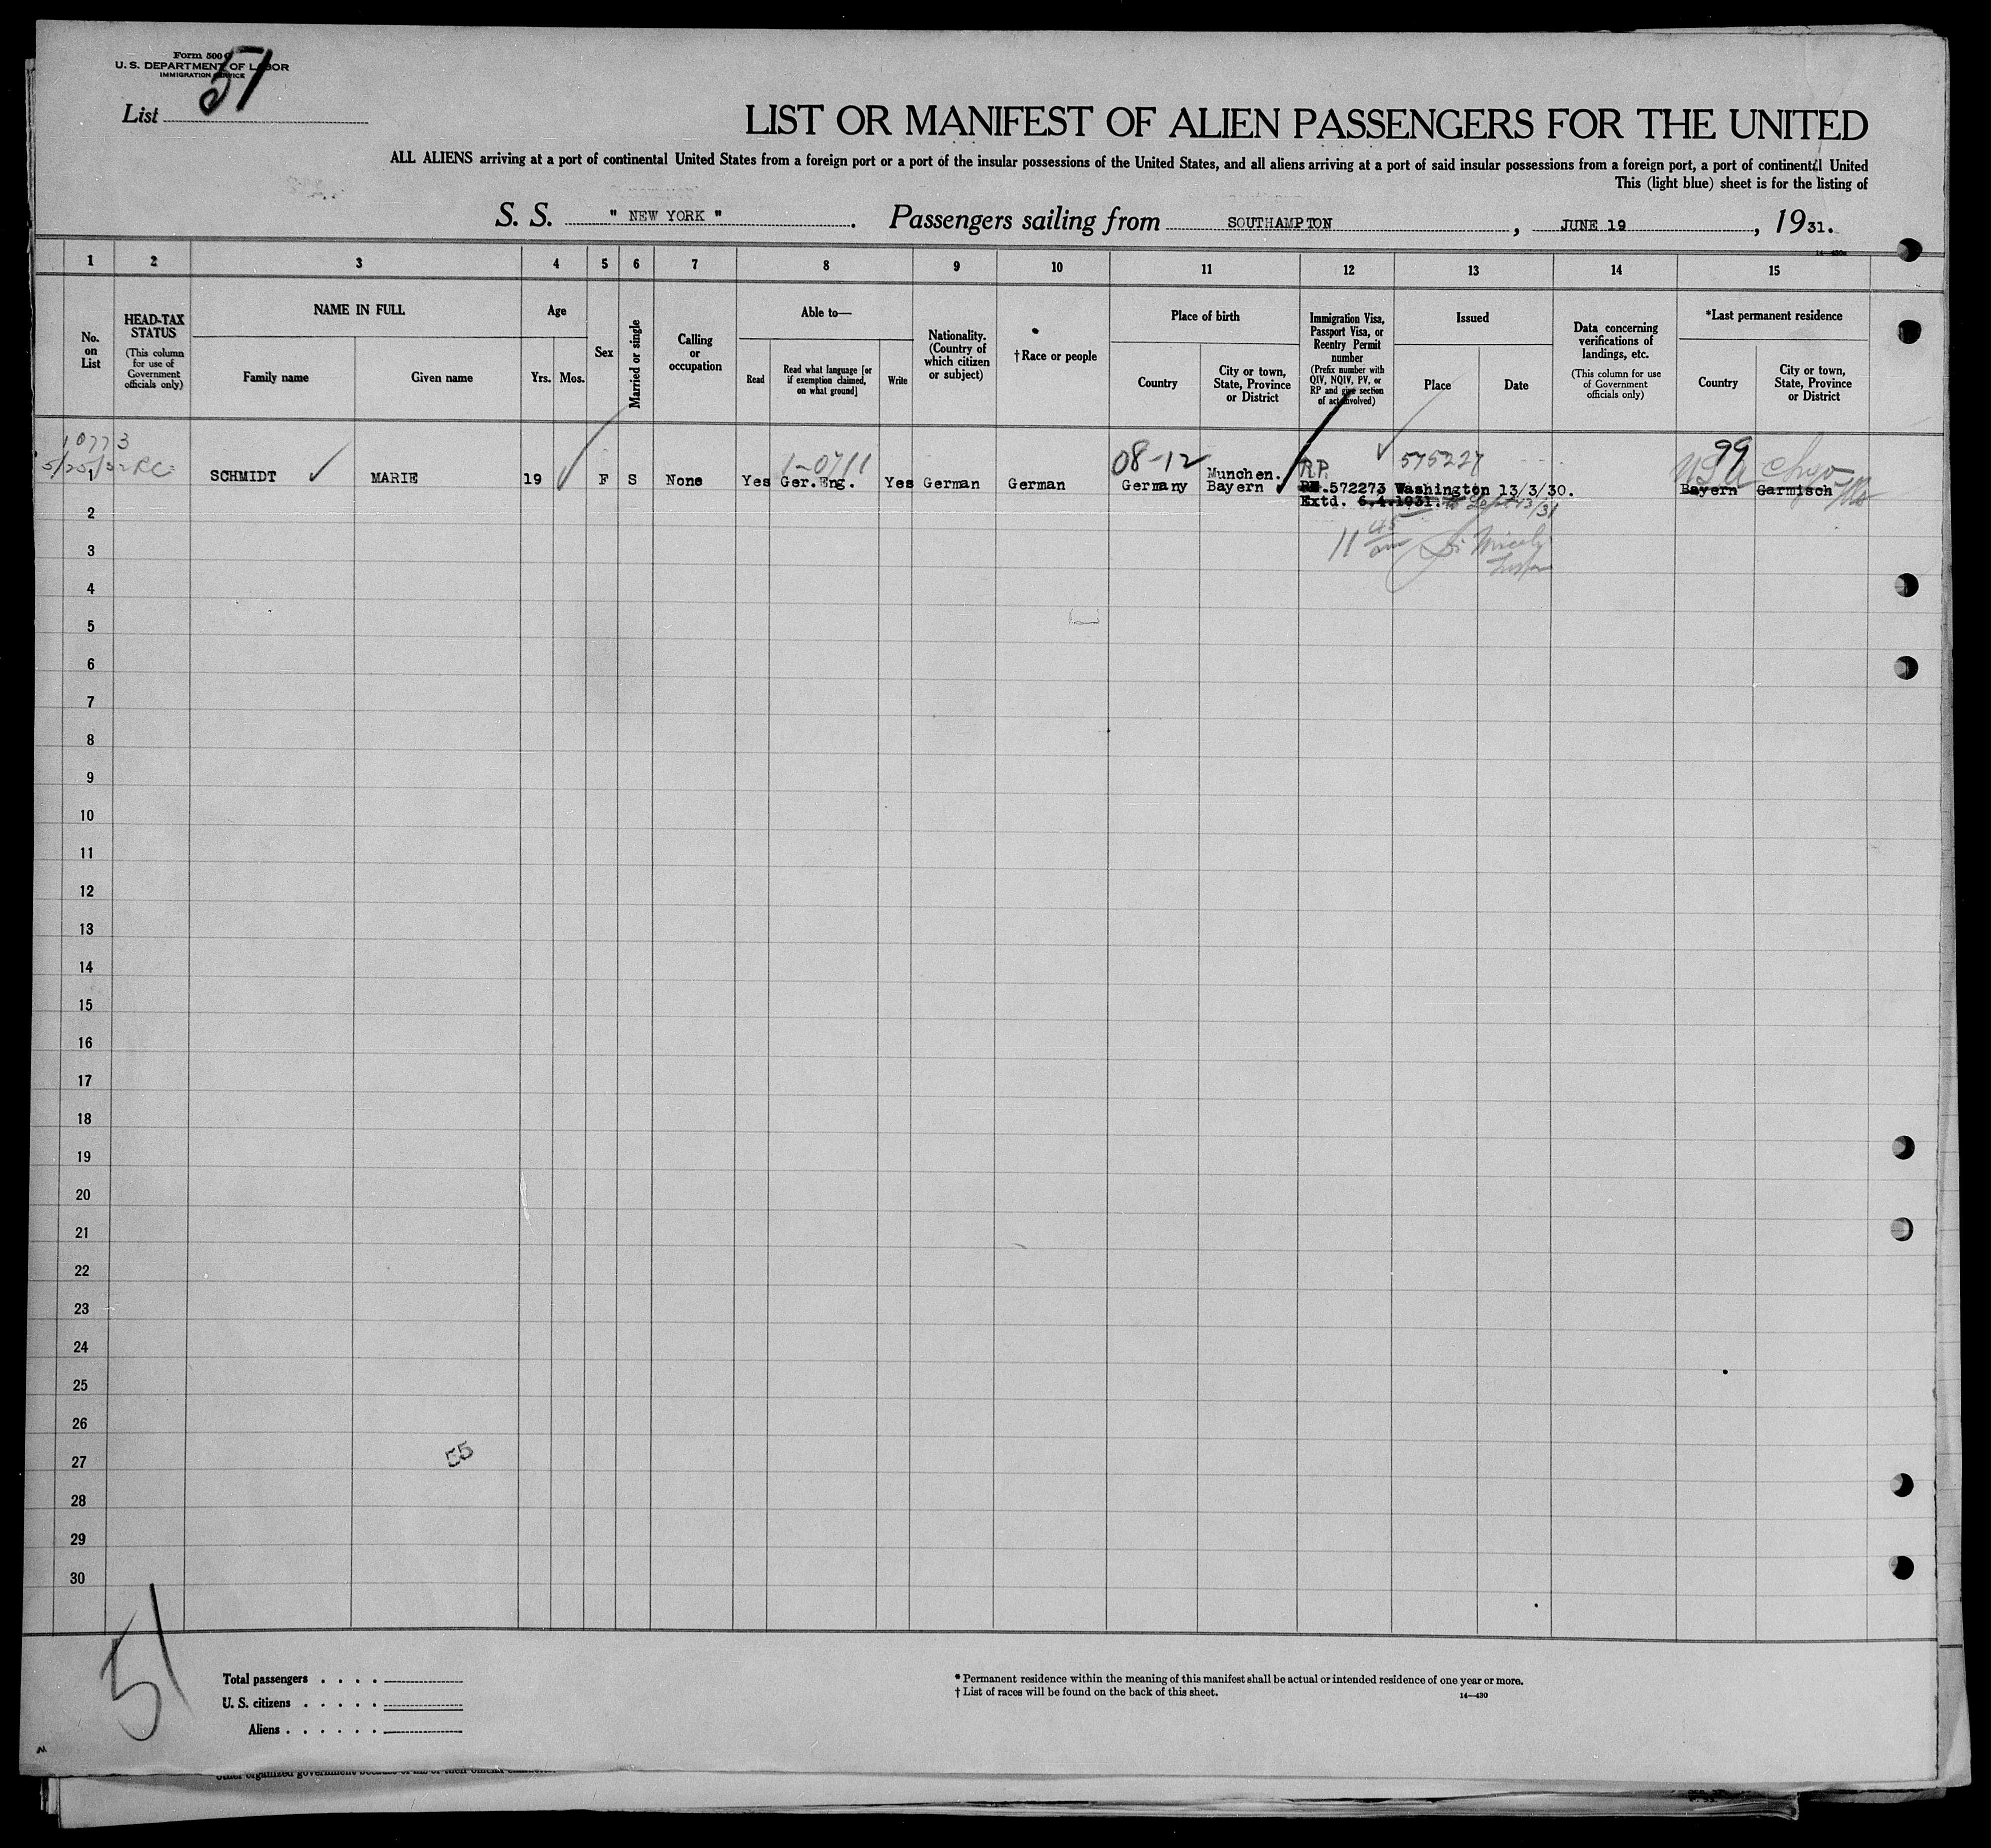 Form 500
U. S. DEPARTMENT OF LABOR
IMMIGRATION SERVICE
List 51
LIST OR MANIFEST OF ALIEN PASSENGERS FOR THE UNITED
ALL ALIENS arriving at a port of continental United States from a foreign port or a port of the insular possessions of the United States, and all aliens arriving at a port of said insular possessions from a foreign port, a port of continental United
This (light blue) sheet is for the listing of
S. S. " NEW YORK ". Passengers sailing from SOUTHAMPTON, JUNE 19, 1931.
1 2 3 4 5 6 7 8 9 10 11 12 13 14 15
No. on List
HEAD-TAX STATUS
(This column for use of Government officials only)
NAME IN FULL
Family name
Given name
Age
Yrs. Mos.
Sex
Married or single
Calling or occupation
Able to—
Read
Read what language [or if exemption claimed, on what ground]
Write
Nationality. (Country of which citizen or subject)
†Race or people
Place of birth
Country
City or town, State, Province or District
Immigration Visa, Passport Visa, or Reentry Permit number
(Prefix number with QIV, NQIV, PV, or RP and give section of act involved)
Issued
Place
Date
Data concerning verifications of landings, etc.
(This column for use of Government officials only)
*Last permanent residence
Country
City or town, State, Province or District
10773
1-0711
08-12
RP.
575227
99
USA
1 SCHMIDT MARIE 19 F S None Yes Ger.Eng. Yes German German Germany Munchen. Bayern .572273 Washington 13/3/30. Bayern Garmisch
Extd. 6.4.1931. Sept 13/31
11 45 am
2
3
4
5
6
7
8
9
10
11
12
13
14
15
16
17
18
19
20
21
22
23
24
25
26
27
28
29
30
55
51
Total passengers . . . .
U. S. citizens . . . . .
Aliens . . . . . .
* Permanent residence within the meaning of this manifest shall be actual or intended residence of one year or more.
† List of races will be found on the back of this sheet.
14—430